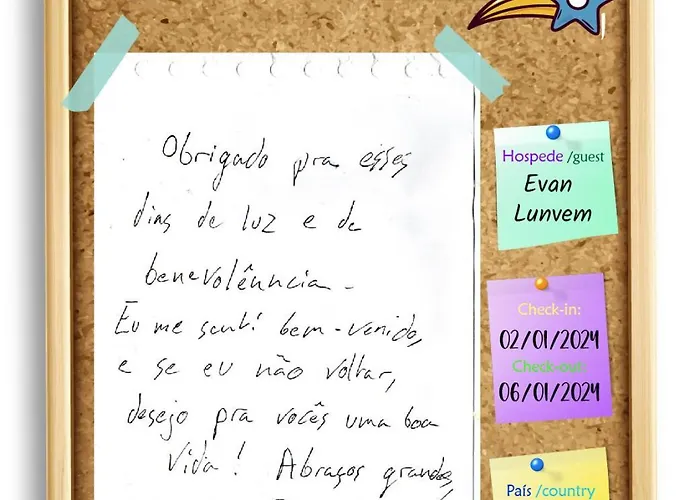 Obrigado pra esses
dias de luz e de
benevolênncia -
Eu me senti bem-venido,
e se eu não voltar,
desejo pra vocês uma boa
vida! Abraços grandes,
Hospede /guest
Evan
Lunvem
Check-in:
02/01/2024
Check-out:
06/01/2024
País /country